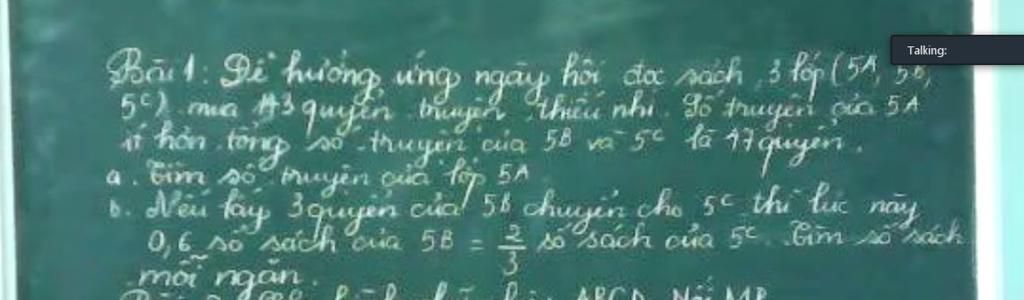 Bài 1: Để hưởng ứng ngày hội đọc sách 3 lớp (5A, 5B,
5C) mua 113 quyển truyện thiếu nhi. Số truyện của 5A
ít hơn tổng số truyện của 5B và 5C là 17 quyển.
a. Tìm số truyện của lớp 5A
b. Nếu lấy 3 quyển của 5B chuyển cho 5C thì lúc này
0,6 số sách của 5B = 2/3 số sách của 5C. Tìm số sách
mỗi ngăn.
ABCD Nối
Talking: